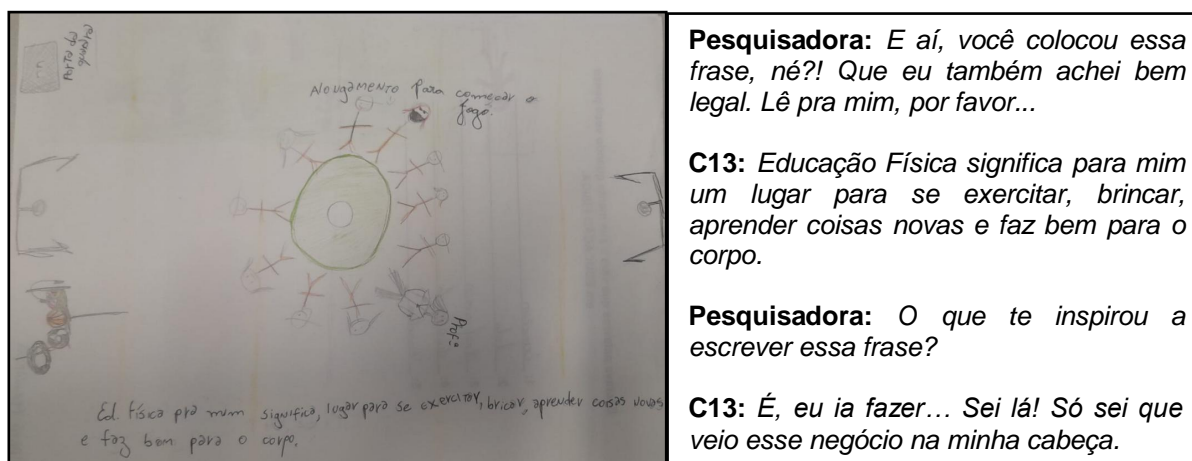 Porta da
quadra
Alougamento para começar o
jogo.
Prof.ª
Ed. Física pra mim significa, lugar para se exercitar, bricar, aprender coisas novas
e faz bem para o corpo.
Pesquisadora: E aí, você colocou essa
frase, né?! Que eu também achei bem
legal. Lê pra mim, por favor...
C13: Educação Física significa para mim
um lugar para se exercitar, brincar,
aprender coisas novas e faz bem para o
corpo.
Pesquisadora: O que te inspirou a
escrever essa frase?
C13: É, eu ia fazer… Sei lá! Só sei que
veio esse negócio na minha cabeça.